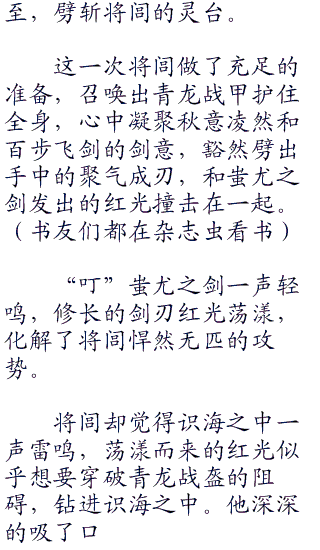 至，劈斩将闾的灵台。
这一次将闾做了充足的
准备，召唤出青龙战甲护住
全身，心中凝聚秋意凌然和
百步飞剑的剑意，豁然劈出
手中的聚气成刃，和蚩尤之
剑发出的红光撞击在一起。
（书友们都在杂志虫看书）
“叮”蚩尤之剑一声轻
鸣，修长的剑刃红光荡漾，
化解了将闾悍然无匹的攻
势。
将闾却觉得识海之中一
声雷鸣，荡漾而来的红光似
乎想要穿破青龙战盔的阻
碍，钻进识海之中。他深深
的吸了口